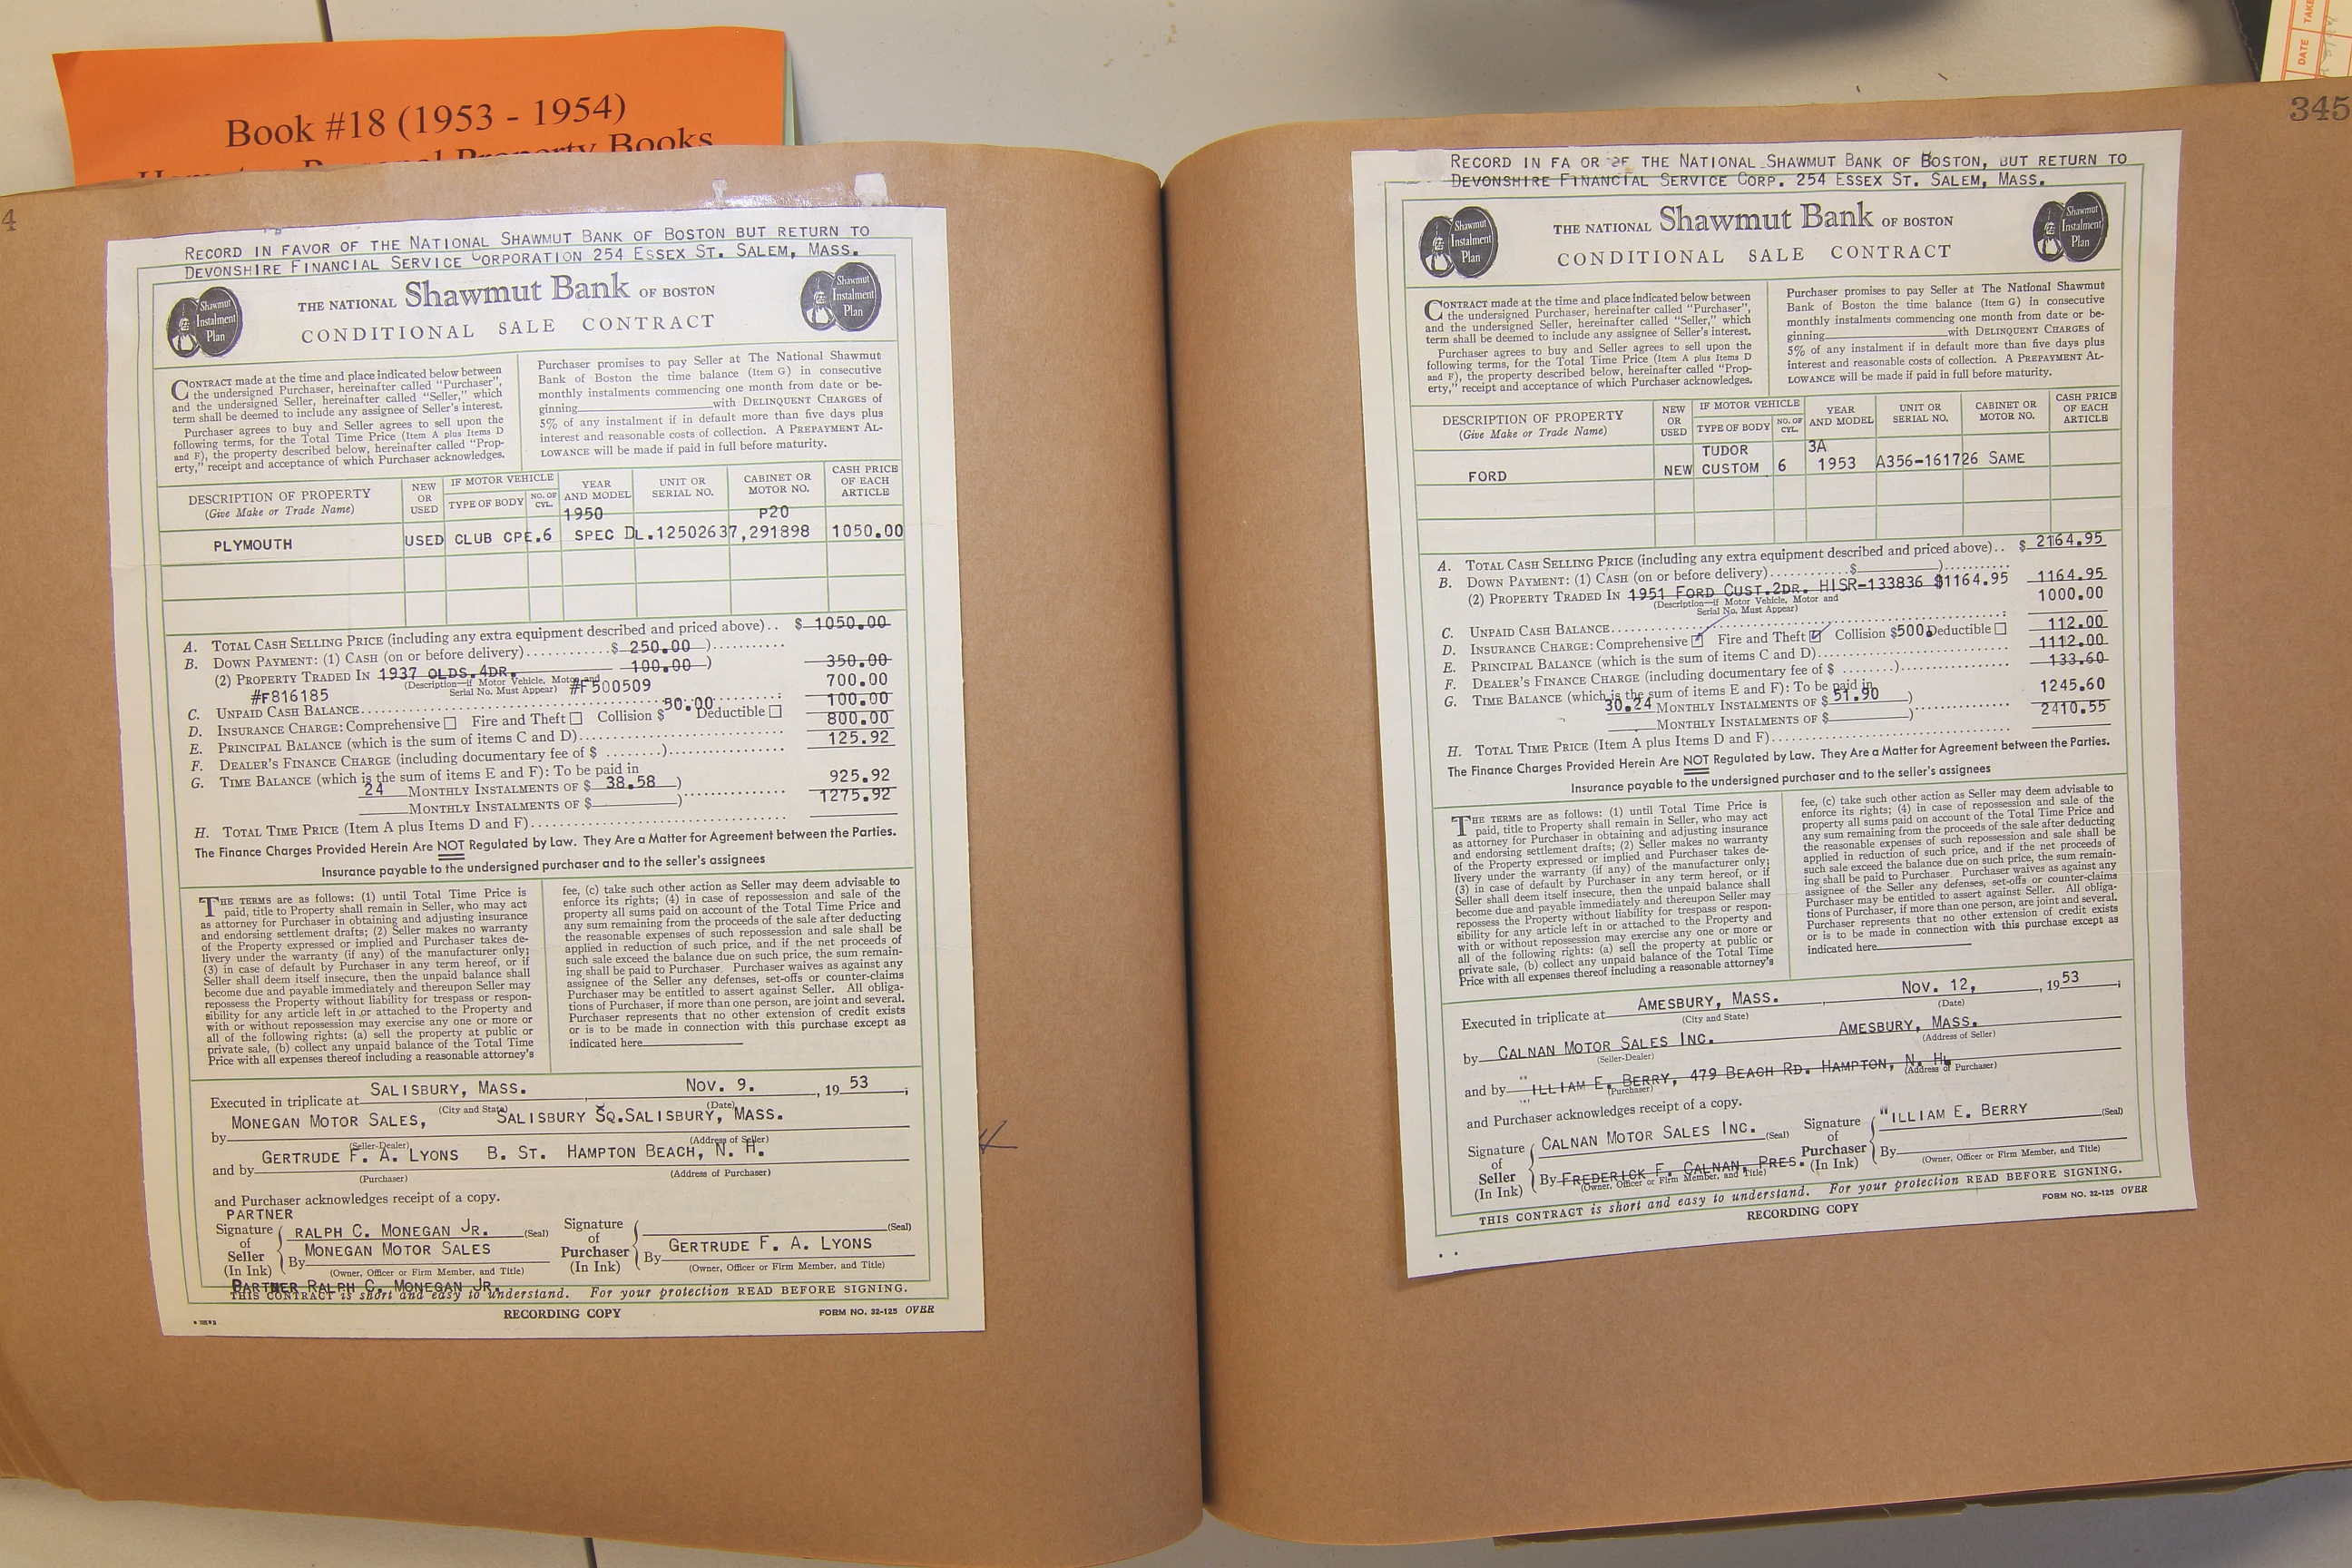 Book #18 (1953 - 1954)
Personal Property Books
4
RECORD IN FAVOR OF THE NATIONAL SHAWMUT BANK OF BOSTON BUT RETURN TO
DEVONSHIRE FINANCIAL SERVICE CORPORATION 254 ESSEX ST. SALEM, MASS.
Shawmut Instalment Plan
THE NATIONAL Shawmut Bank OF BOSTON
Shawmut Instalment Plan
CONDITIONAL SALE CONTRACT
CONTRACT made at the time and place indicated below between
the undersigned Purchaser, hereinafter called "Purchaser",
and the undersigned Seller, hereinafter called "Seller," which
term shall be deemed to include any assignee of Seller's interest.
Purchaser agrees to buy and Seller agrees to sell upon the
following terms, for the Total Time Price (Item A plus Items D
and F), the property described below, hereinafter called "Prop-
erty," receipt and acceptance of which Purchaser acknowledges.
Purchaser promises to pay Seller at The National Shawmut
Bank of Boston the time balance (Item G) in consecutive
monthly instalments commencing one month from date or be-
ginning with DELINQUENT CHARGES of
5% of any instalment if in default more than five days plus
interest and reasonable costs of collection. A PREPAYMENT AL-
LOWANCE will be made if paid in full before maturity.
DESCRIPTION OF PROPERTY (Give Make or Trade Name) NEW OR USED IF MOTOR VEHICLE TYPE OF BODY NO. OF CYL. YEAR AND MODEL UNIT OR SERIAL NO. CABINET OR MOTOR NO. CASH PRICE OF EACH ARTICLE
1950 P20
PLYMOUTH USED CLUB CPE.6 SPEC DL.12502637,291898 1050.00
A. TOTAL CASH SELLING PRICE (including any extra equipment described and priced above).. $ 1050.00
B. DOWN PAYMENT: (1) CASH (on or before delivery)............$ 250.00 )..........
(2) PROPERTY TRADED IN 1937 OLDS.4DR. 100.00 ) 350.00
(Description—if Motor Vehicle, Motor and
Serial No. Must Appear)
#F816185 #F500509 700.00
C. UNPAID CASH BALANCE
D. INSURANCE CHARGE: Comprehensive Fire and Theft Collision $ 50.00 Deductible 100.00
E. PRINCIPAL BALANCE (which is the sum of items C and D) 800.00
F. DEALER'S FINANCE CHARGE (including documentary fee of $ ........) 125.92
G. TIME BALANCE (which is the sum of items E and F): To be paid in
24 MONTHLY INSTALMENTS OF $ 38.58 ) 925.92
MONTHLY INSTALMENTS OF $ ) 1275.92
H. TOTAL TIME PRICE (Item A plus Items D and F)
The Finance Charges Provided Herein Are NOT Regulated by Law. They Are a Matter for Agreement between the Parties.
Insurance payable to the undersigned purchaser and to the seller's assignees
THE TERMS are as follows: (1) until Total Time Price is
paid, title to Property shall remain in Seller, who may act
as attorney for Purchaser in obtaining and adjusting insurance
and endorsing settlement drafts; (2) Seller makes no warranty
of the Property expressed or implied and Purchaser takes de-
livery under the warranty (if any) of the manufacturer only;
(3) in case of default by Purchaser in any term hereof, or if
Seller shall deem itself insecure, then the unpaid balance shall
become due and payable immediately and thereupon Seller may
repossess the Property without liability for trespass or respon-
sibility for any article left in or attached to the Property and
with or without repossession may exercise any one or more or
all of the following rights: (a) sell the property at public or
private sale, (b) collect any unpaid balance of the Total Time
Price with all expenses thereof including a reasonable attorney's
fee, (c) take such other action as Seller may deem advisable to
enforce its rights; (4) in case of repossession and sale of the
property all sums paid on account of the Total Time Price and
any sum remaining from the proceeds of the sale after deducting
the reasonable expenses of such repossession and sale shall be
applied in reduction of such price, and if the net proceeds of
such sale exceed the balance due on such price, the sum remain-
ing shall be paid to Purchaser. Purchaser waives as against any
assignee of the Seller any defenses, set-offs or counter-claims
Purchaser may be entitled to assert against Seller. All obliga-
tions of Purchaser, if more than one person, are joint and several.
Purchaser represents that no other extension of credit exists
or is to be made in connection with this purchase except as
indicated here
Executed in triplicate at SALISBURY, MASS. Nov. 9. , 19 53 ,
(City and State) (Date)
by MONEGAN MOTOR SALES, SALISBURY SQ.SALISBURY, MASS.
(Seller-Dealer) (Address of Seller)
and by GERTRUDE F. A. LYONS B. ST. HAMPTON BEACH, N. H.
(Purchaser) (Address of Purchaser)
and Purchaser acknowledges receipt of a copy.
PARTNER
Signature of Seller (In Ink) RALPH C. MONEGAN JR. (Seal)
By MONEGAN MOTOR SALES
(Owner, Officer or Firm Member, and Title)
Signature of Purchaser (In Ink) (Seal)
By GERTRUDE F. A. LYONS
(Owner, Officer or Firm Member, and Title)
PARTNER RALPH C. MONEGAN JR.
THIS CONTRACT is short and easy to understand. For your protection READ BEFORE SIGNING.
RECORDING COPY FORM NO. 32-125 OVER
DATE TAKE
345
RECORD IN FA OR OF THE NATIONAL SHAWMUT BANK OF BOSTON, BUT RETURN TO
DEVONSHIRE FINANCIAL SERVICE CORP. 254 ESSEX ST. SALEM, MASS.
Shawmut Instalment Plan
THE NATIONAL Shawmut Bank OF BOSTON
Shawmut Instalment Plan
CONDITIONAL SALE CONTRACT
CONTRACT made at the time and place indicated below between
the undersigned Purchaser, hereinafter called "Purchaser",
and the undersigned Seller, hereinafter called "Seller," which
term shall be deemed to include any assignee of Seller's interest.
Purchaser agrees to buy and Seller agrees to sell upon the
following terms, for the Total Time Price (Item A plus Items D
and F), the property described below, hereinafter called "Prop-
erty," receipt and acceptance of which Purchaser acknowledges.
Purchaser promises to pay Seller at The National Shawmut
Bank of Boston the time balance (Item G) in consecutive
monthly instalments commencing one month from date or be-
ginning with DELINQUENT CHARGES of
5% of any instalment if in default more than five days plus
interest and reasonable costs of collection. A PREPAYMENT AL-
LOWANCE will be made if paid in full before maturity.
DESCRIPTION OF PROPERTY (Give Make or Trade Name) NEW OR USED IF MOTOR VEHICLE TYPE OF BODY NO. OF CYL. YEAR AND MODEL UNIT OR SERIAL NO. CABINET OR MOTOR NO. CASH PRICE OF EACH ARTICLE
TUDOR 3A
FORD NEW CUSTOM 6 1953 A356-161726 SAME
A. TOTAL CASH SELLING PRICE (including any extra equipment described and priced above).. $ 2164.95
B. DOWN PAYMENT: (1) CASH (on or before delivery)............$ )..........
(2) PROPERTY TRADED IN 1951 FORD CUST.2DR. H1SR-133836 $1164.95 1164.95
(Description—if Motor Vehicle, Motor and
Serial No. Must Appear)
1000.00
C. UNPAID CASH BALANCE
D. INSURANCE CHARGE: Comprehensive Fire and Theft Collision $500. Deductible 112.00
E. PRINCIPAL BALANCE (which is the sum of items C and D) 1112.00
F. DEALER'S FINANCE CHARGE (including documentary fee of $ ........) 133.60
G. TIME BALANCE (which is the sum of items E and F): To be paid in
30.24 MONTHLY INSTALMENTS OF $ 51.90 ) 1245.60
MONTHLY INSTALMENTS OF $ ) 2410.55
H. TOTAL TIME PRICE (Item A plus Items D and F)
The Finance Charges Provided Herein Are NOT Regulated by Law. They Are a Matter for Agreement between the Parties.
Insurance payable to the undersigned purchaser and to the seller's assignees
THE TERMS are as follows: (1) until Total Time Price is
paid, title to Property shall remain in Seller, who may act
as attorney for Purchaser in obtaining and adjusting insurance
and endorsing settlement drafts; (2) Seller makes no warranty
of the Property expressed or implied and Purchaser takes de-
livery under the warranty (if any) of the manufacturer only;
(3) in case of default by Purchaser in any term hereof, or if
Seller shall deem itself insecure, then the unpaid balance shall
become due and payable immediately and thereupon Seller may
repossess the Property without liability for trespass or respon-
sibility for any article left in or attached to the Property and
with or without repossession may exercise any one or more or
all of the following rights: (a) sell the property at public or
private sale, (b) collect any unpaid balance of the Total Time
Price with all expenses thereof including a reasonable attorney's
fee, (c) take such other action as Seller may deem advisable to
enforce its rights; (4) in case of repossession and sale of the
property all sums paid on account of the Total Time Price and
any sum remaining from the proceeds of the sale after deducting
the reasonable expenses of such repossession and sale shall be
applied in reduction of such price, and if the net proceeds of
such sale exceed the balance due on such price, the sum remain-
ing shall be paid to Purchaser. Purchaser waives as against any
assignee of the Seller any defenses, set-offs or counter-claims
Purchaser may be entitled to assert against Seller. All obliga-
tions of Purchaser, if more than one person, are joint and several.
Purchaser represents that no other extension of credit exists
or is to be made in connection with this purchase except as
indicated here
Executed in triplicate at AMESBURY, MASS. Nov. 12, , 19 53 ,
(City and State) (Date)
by CALNAN MOTOR SALES INC. AMESBURY, MASS.
(Seller-Dealer) (Address of Seller)
and by "ILLIAM E. BERRY, 479 BEACH RD. HAMPTON, N. H.
(Purchaser) (Address of Purchaser)
and Purchaser acknowledges receipt of a copy.
Signature of Seller (In Ink) CALNAN MOTOR SALES INC. (Seal)
By FREDERICK F. CALNAN, PRES.
(Owner, Officer or Firm Member, and Title)
Signature of Purchaser (In Ink) "ILLIAM E. BERRY (Seal)
By
(Owner, Officer or Firm Member, and Title)
THIS CONTRACT is short and easy to understand. For your protection READ BEFORE SIGNING.
RECORDING COPY FORM NO. 32-125 OVER